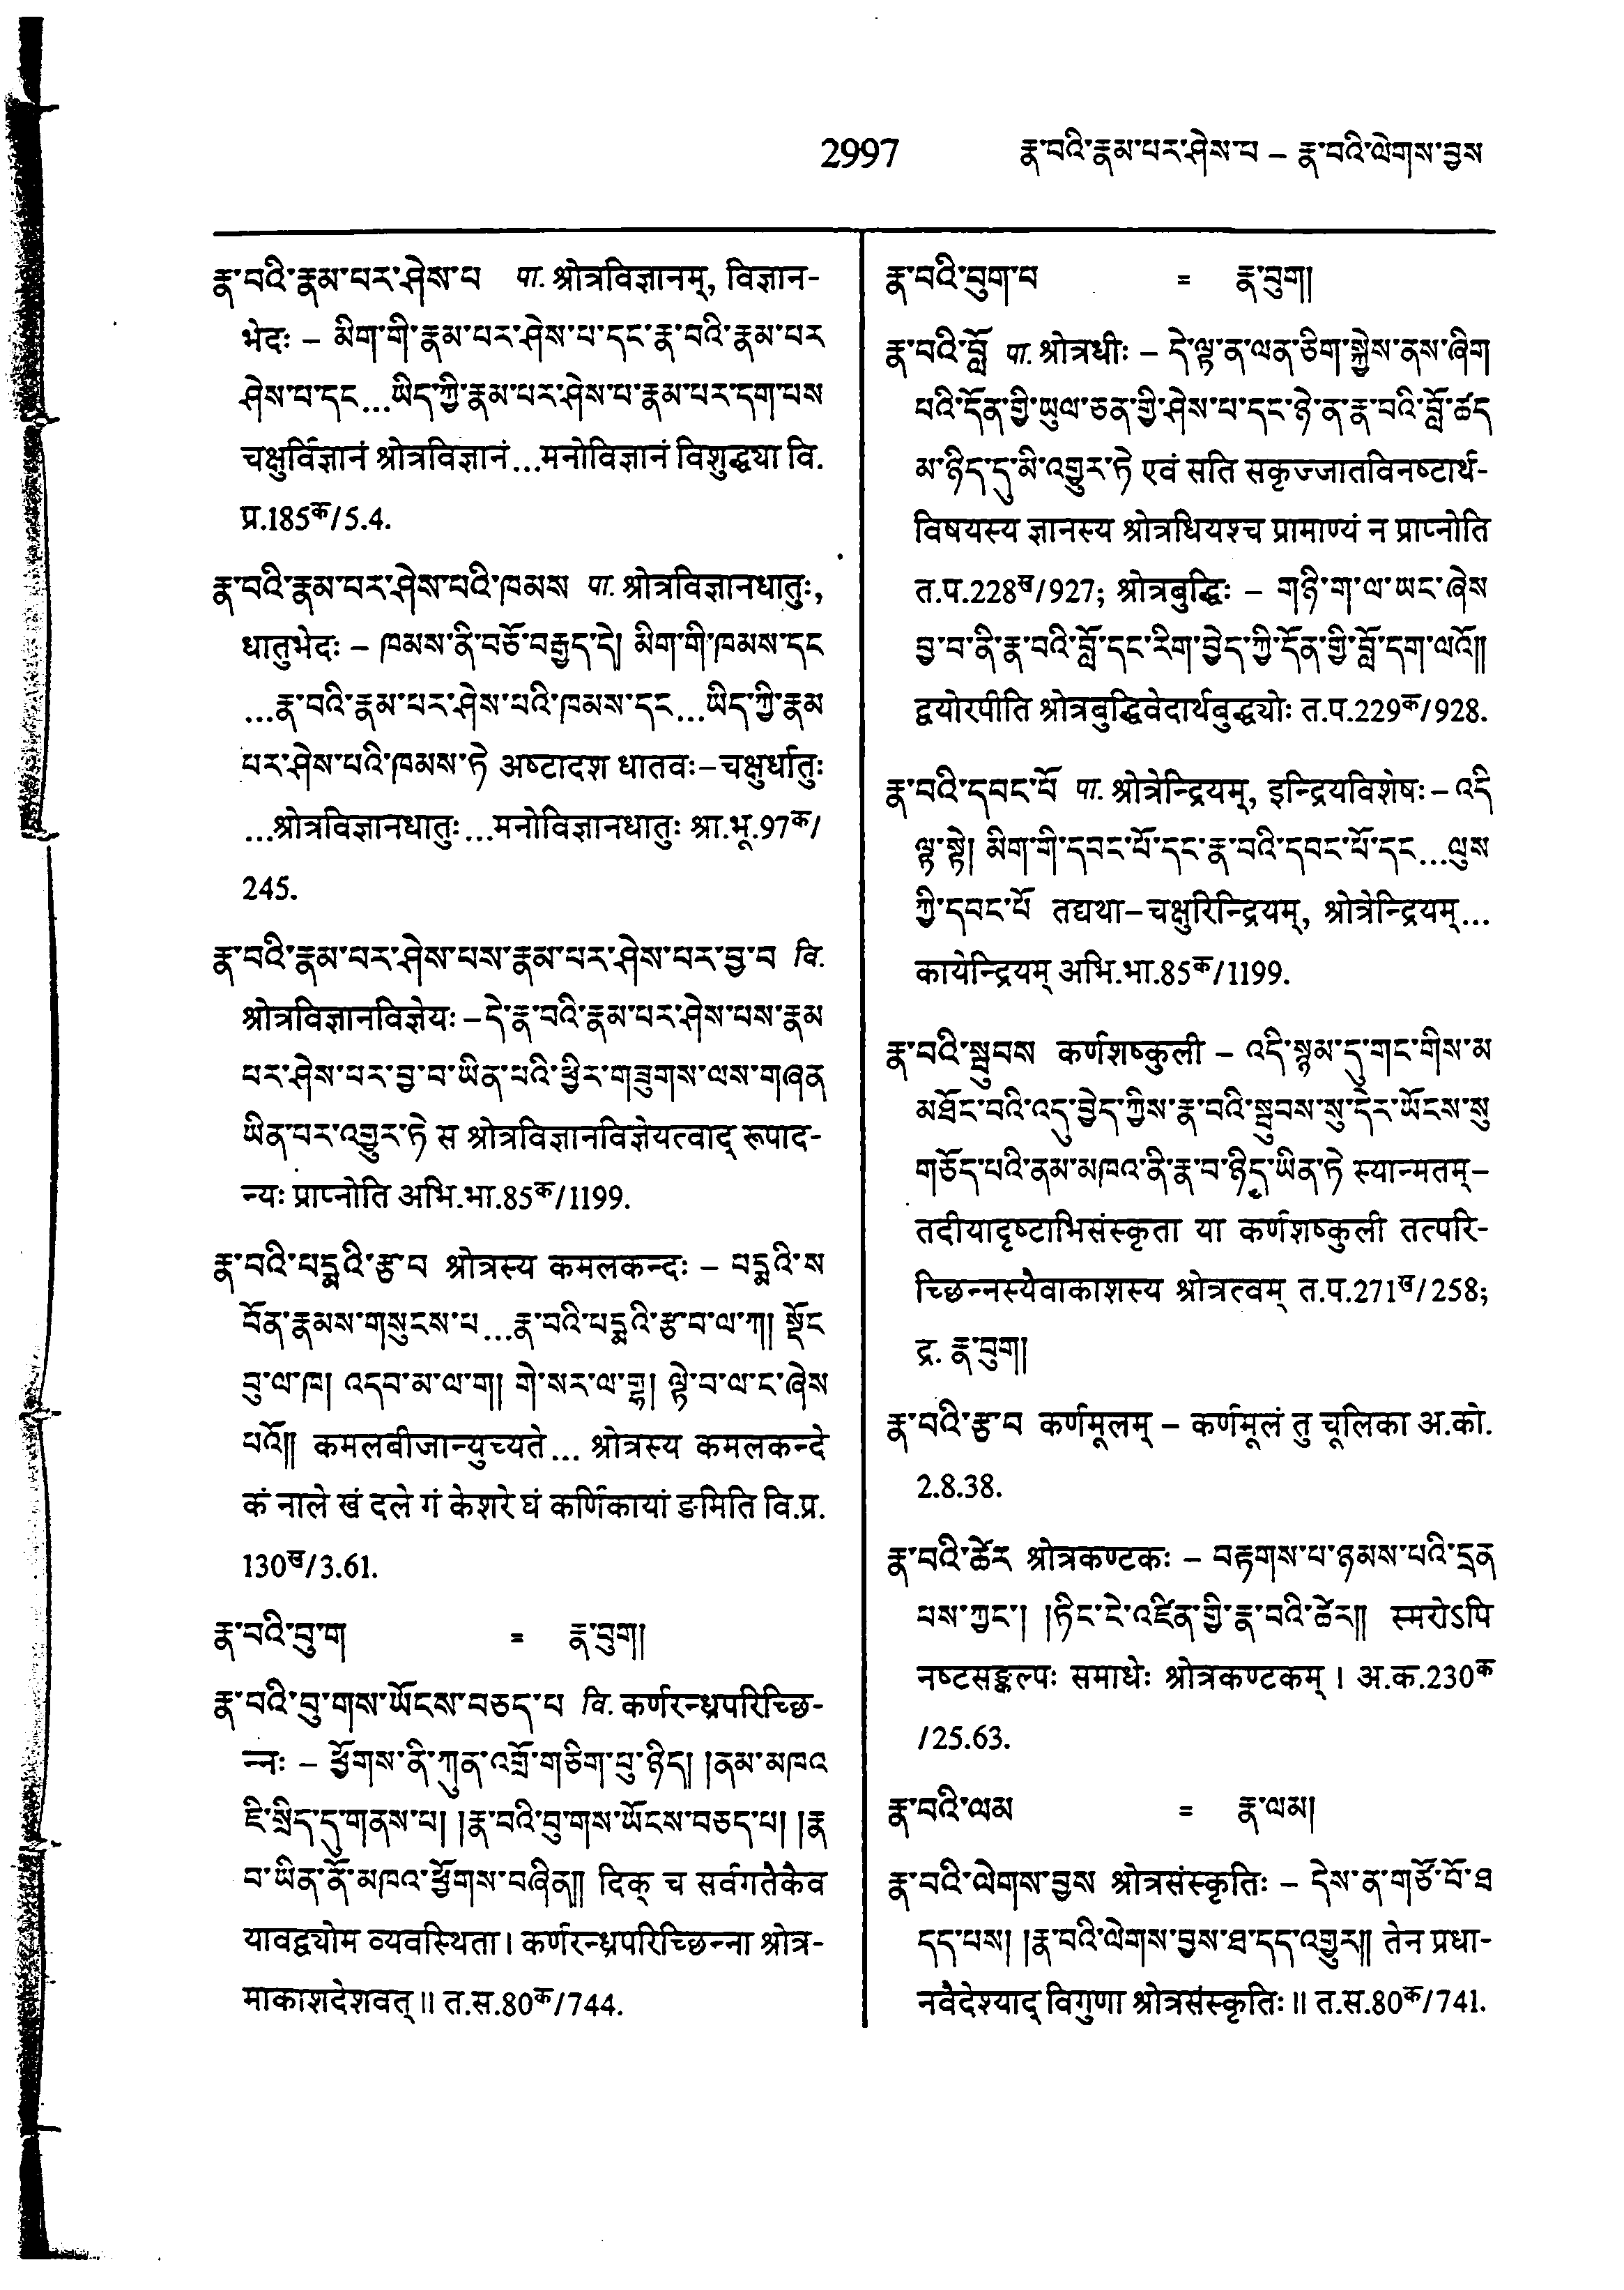 2997 རྣ་བའི་རྣམ་པར་ཤེས་པ – རྣ་བའི་ལེགས་བྱས
རྣ་བའི་རྣམ་པར་ཤེས་པ पा. श्रोत्रविज्ञानम्, विज्ञान-
भेदः – མིག་གི་རྣམ་པར་ཤེས་པ་དང་རྣ་བའི་རྣམ་པར
ཤེས་པ་དང...ཡིད་ཀྱི་རྣམ་པར་ཤེས་པ་རྣམ་པར་དག་པས
चक्षुर्विज्ञानं श्रोत्रविज्ञानं...मनोविज्ञानं विशुद्ध्या वि.
प्र.185क/5.4.
རྣ་བའི་རྣམ་པར་ཤེས་པའི་ཁམས पा. श्रोत्रविज्ञानधातुः,
धातुभेदः – ཁམས་ནི་བཅོ་བརྒྱད་དེ། མིག་གི་ཁམས་དང
...རྣ་བའི་རྣམ་པར་ཤེས་པའི་ཁམས་དང...ཡིད་ཀྱི་རྣམ
པར་ཤེས་པའི་ཁམས་ཏེ अष्टादश धातवः–चक्षुर्धातुः
...श्रोत्रविज्ञानधातुः...मनोविज्ञानधातुः श्रा.भू.97क/
245.
རྣ་བའི་རྣམ་པར་ཤེས་པས་རྣམ་པར་ཤེས་པར་བྱ་བ वि.
श्रोत्रविज्ञानविज्ञेयः–དེ་རྣ་བའི་རྣམ་པར་ཤེས་པས་རྣམ
པར་ཤེས་པར་བྱ་བ་ཡིན་པའི་ཕྱིར་གཟུགས་ལས་གཞན
ཡིན་པར་འགྱུར་ཏེ स श्रोत्रविज्ञानविज्ञेयत्वाद् रूपाद-
न्यः प्राप्नोति अभि.भा.85क/1199.
རྣ་བའི་པདྨའི་རྩ་བ श्रोत्रस्य कमलकन्दः – པདྨའི་ས
བོན་རྣམས་གསུངས་པ...རྣ་བའི་པདྨའི་རྩ་བ་ལ་ཀ། སྡོང
བུ་ལ་ཁ། འདབ་མ་ལ་ག། གེ་སར་ལ་གྷ། ལྟེ་བ་ལ་ང་ཞེས
པའོ།། कमलबीजान्युच्यते... श्रोत्रस्य कमलकन्दे
कं नाले खं दले गं केशरे घं कर्णिकायां ङमिति वि.प्र.
130ख/3.61.
རྣ་བའི་བུ་ག = རྣ་བུག།
རྣ་བའི་བུ་གས་ཡོངས་བཅད་པ वि. कर्णरन्ध्रपरिच्छि-
न्नः – ཕྱོགས་ནི་ཀུན་འགྲོ་གཅིག་པུ་ཉིད། །ནམ་མཁའ
ཇི་སྲིད་དུ་གནས་པ། །རྣ་བའི་བུ་གས་ཡོངས་བཅད་པ། །རྣ
བ་ཡིན་ནོ་མཁའ་ཕྱོགས་བཞིན།། दिक् च सर्वगतैकैव
यावद्व्योम व्यवस्थिता। कर्णरन्ध्रपरिच्छिन्ना श्रोत्र-
माकाशदेशवत्॥ त.स.80क/744.
རྣ་བའི་བུག་པ = རྣ་བུག།
རྣ་བའི་བློ पा. श्रोत्रधीः – དེ་ལྟ་ན་ལན་ཅིག་སྐྱེས་ནས་ཞིག
པའི་དོན་གྱི་ཡུལ་ཅན་གྱི་ཤེས་པ་དང་ཉེ་ན་རྣ་བའི་བློ་ཚད
མ་ཉིད་དུ་མི་འགྱུར་ཏེ एवं सति सकृज्जातविनष्टार्थ-
विषयस्य ज्ञानस्य श्रोत्रधियश्च प्रामाण्यं न प्राप्नोति
त.प.228ख/927; श्रोत्रबुद्धिः – གཉི་ག་ལ་ཡང་ཞེས
བྱ་བ་ནི་རྣ་བའི་བློ་དང་རིག་བྱེད་ཀྱི་དོན་གྱི་བློ་དག་ལའོ།།
द्वयोरपीति श्रोत्रबुद्धिवेदार्थबुद्ध्योः त.प.229क/928.
རྣ་བའི་དབང་པོ पा. श्रोत्रेन्द्रियम्, इन्द्रियविशेषः–འདི
ལྟ་སྟེ། མིག་གི་དབང་པོ་དང་རྣ་བའི་དབང་པོ་དང...ལུས
ཀྱི་དབང་པོ तद्यथा–चक्षुरिन्द्रियम्, श्रोत्रेन्द्रियम्...
कायेन्द्रियम् अभि.भा.85क/1199.
རྣ་བའི་སྦུབས कर्णशष्कुली – འདི་སྙམ་དུ་གང་གིས་མ
མཐོང་བའི་འདུ་བྱེད་ཀྱིས་རྣ་བའི་སྦུབས་སུ་དེར་ཡོངས་སུ
གཅོད་པའི་ནམ་མཁའ་ནི་རྣ་བ་ཉིད་ཡིན་ཏེ स्यान्मतम्–
तदीयादृष्टाभिसंस्कृता या कर्णशष्कुली तत्परि-
च्छिन्नस्यैवाकाशस्य श्रोत्रत्वम् त.प.271ख/258;
द्र. རྣ་བུག།
རྣ་བའི་རྩ་བ कर्णमूलम् – कर्णमूलं तु चूलिका अ.को.
2.8.38.
རྣ་བའི་ཚེར श्रोत्रकण्टकः – བརྟགས་པ་ཉམས་པའི་དྲན
པས་ཀྱང་། །ཏིང་ངེ་འཛིན་གྱི་རྣ་བའི་ཚེར།། स्मरोऽपि
नष्टसङ्कल्पः समाधेः श्रोत्रकण्टकम्। अ.क.230क
/25.63.
རྣ་བའི་ལམ = རྣ་ལམ།
རྣ་བའི་ལེགས་བྱས श्रोत्रसंस्कृतिः – དེས་ན་གཙོ་བོ་ཐ
དད་པས། །རྣ་བའི་ལེགས་བྱས་ཐ་དད་འགྱུར།། तेन प्रधा-
नवैदेश्याद् विगुणा श्रोत्रसंस्कृतिः॥ त.स.80क/741.